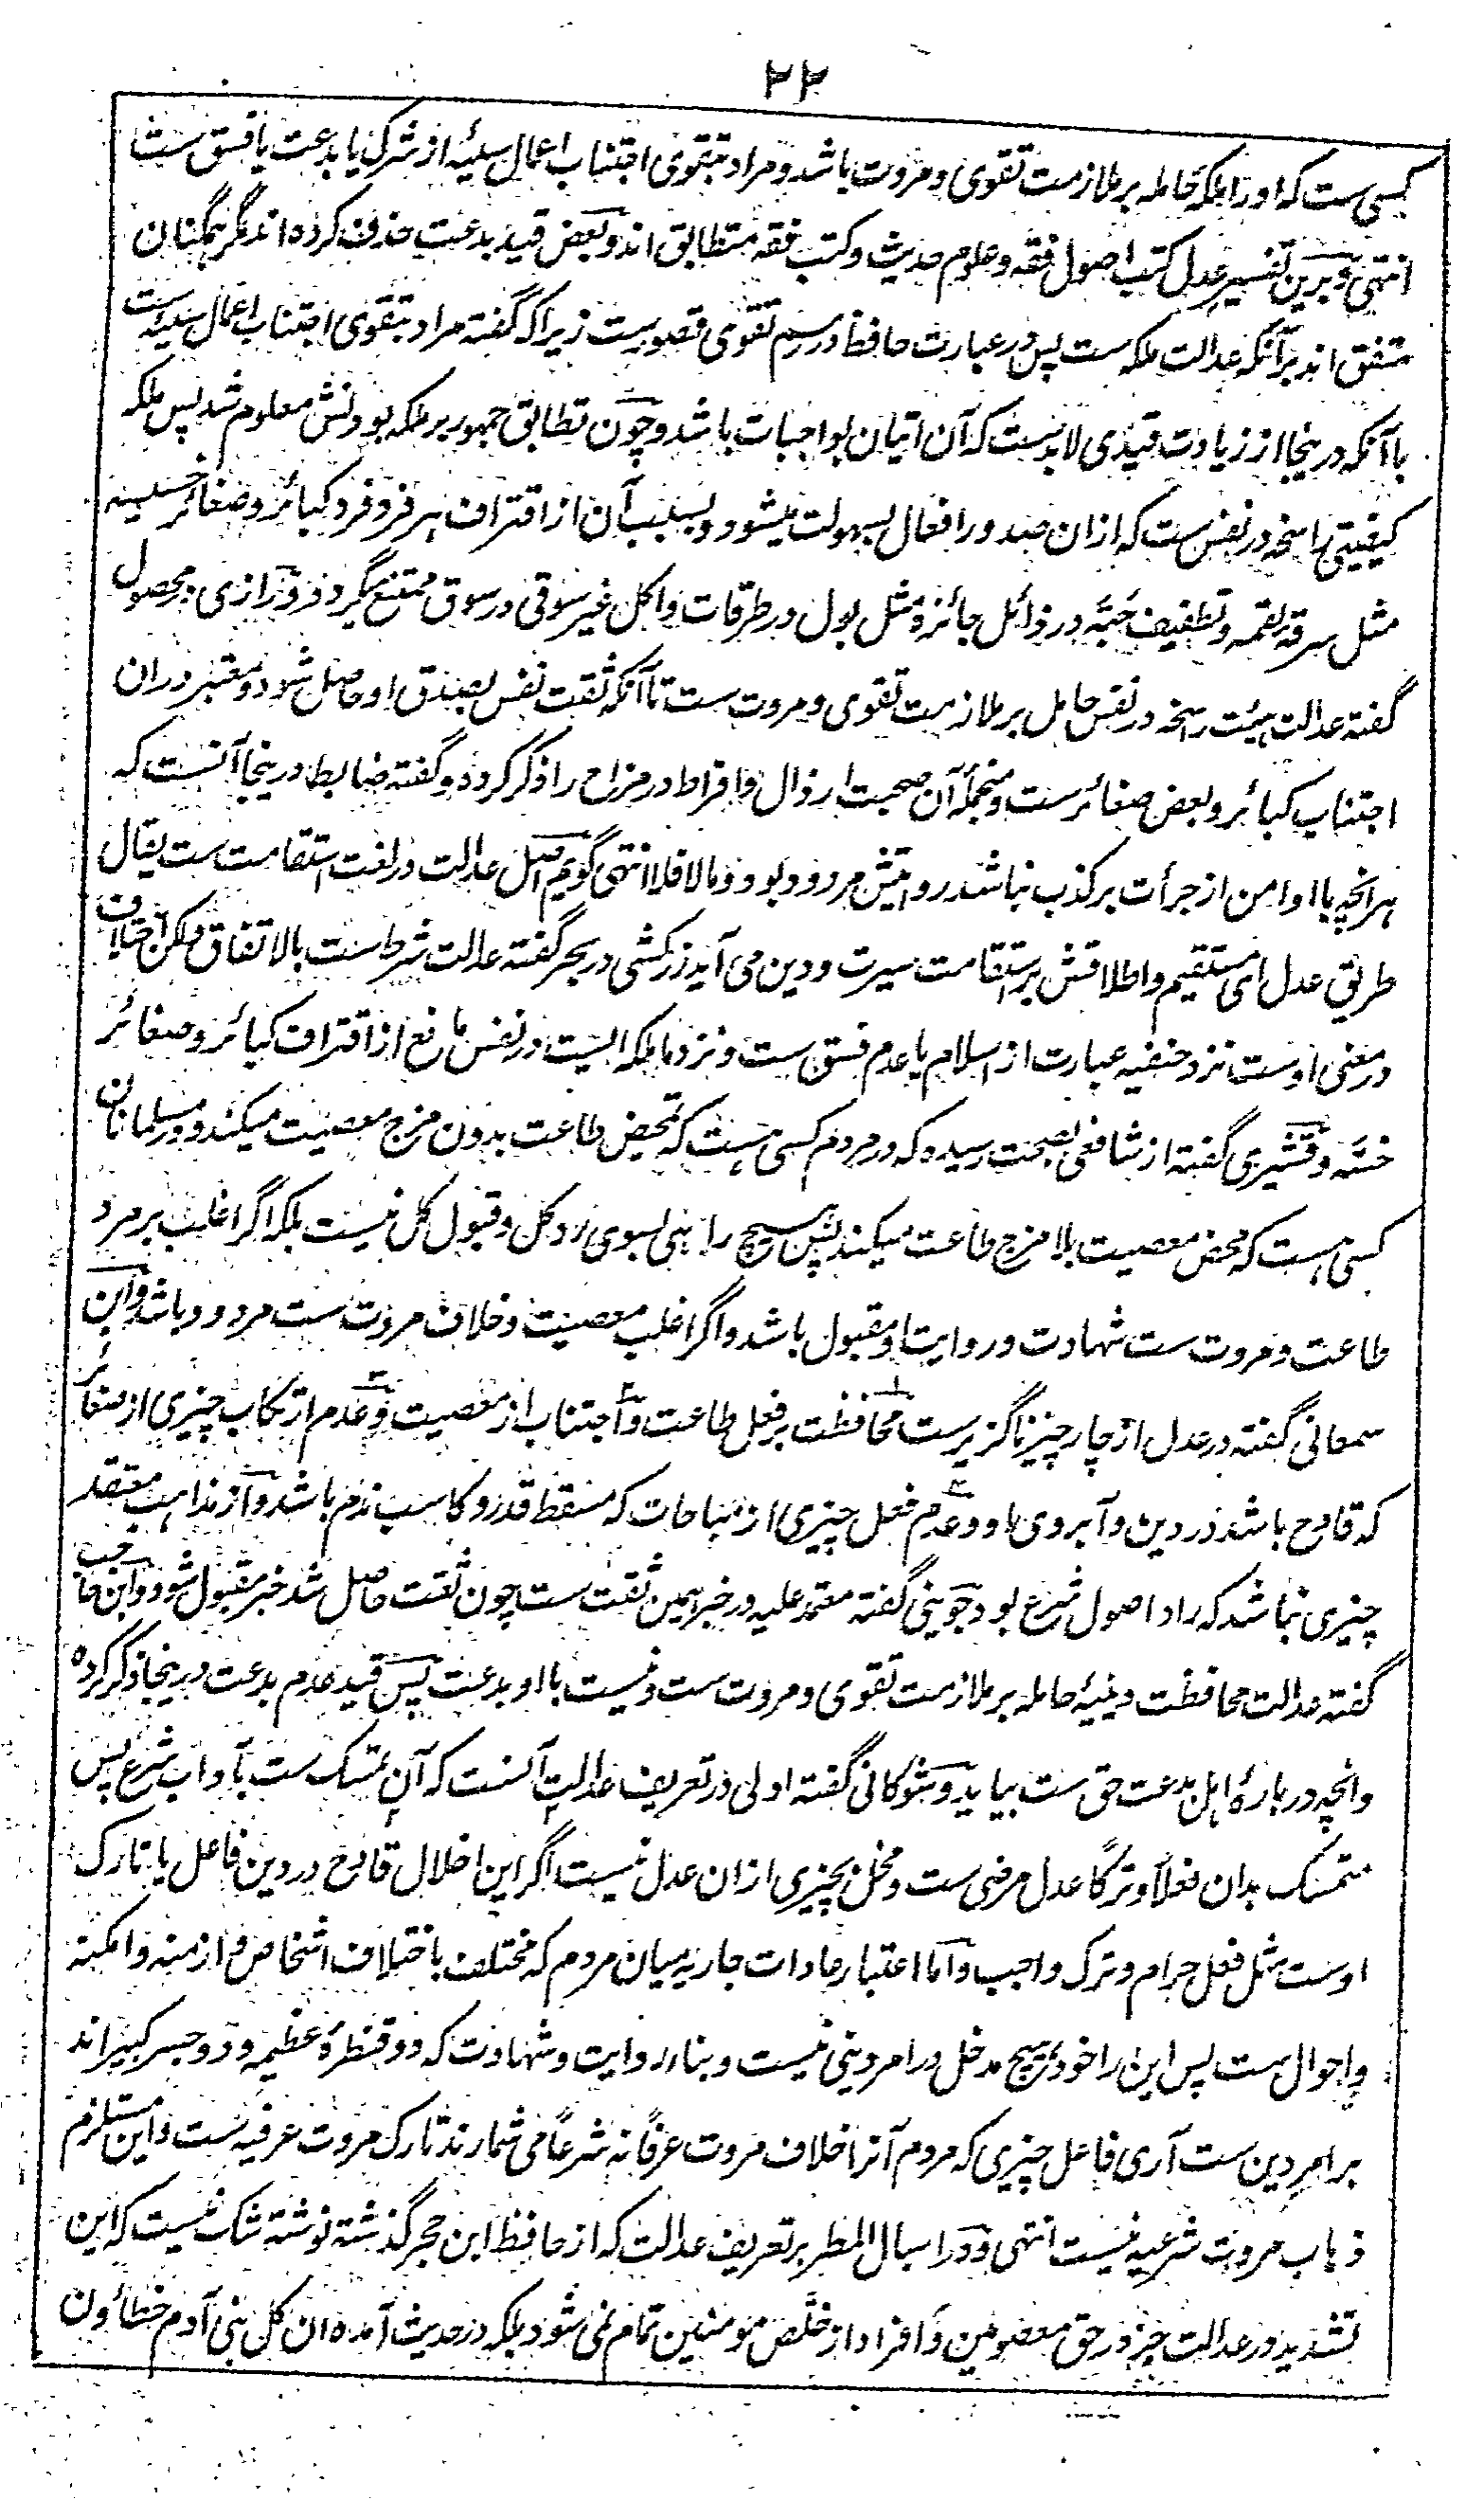 ۲۲
کسی ست که او را ملکۀ حامله بر ملازمت تقوی و مروت باشد و مراد بتقوی اجتناب اعمال سیئه از شرک یا بدعت یا فسق ست
انتهی و برین تفسیر عدل کتب اصول فقه و علوم حدیث و کتب فقه متطابق اند و بعض قید بدعت حذف کرده اند مگر همگنان
متفق اند برآنکه عدالت ملکه ست پس در عبارت حافظ در رسم تقوی قصورست زیراکه گفته مراد بتقوی اجتناب اعمال سیئه است
با آنکه درینجا از زیادت قیدی لابدست که آن اتیان بواجبات باشد و چون تطابق جمهور بر ملکه بودنش معلوم شد پس ملکه
کیفیتی راسخه در نفس ست که ازان صدور افعال بسهولت میشود و بسبب آن از اقتراف هر فرد فرد کبائر و صغائر خسیسه
مثل سرقه لقمه و تطفیف حبّه و رذائل جائزه مثل بول در طرقات و اکل غیر سوقی در سوق ممتنع میگردد و رازی در محصول
گفته عدالت هیئت راسخه در نفس حامل بر ملازمت تقوی و مروت ست تا آنکه ثقت نفس بصدق او حاصل شود و معتبر دران
اجتناب کبائر و بعض صغائر ست و منجملۀ آن صحبت ارذال و افراط در مزاح را ذکر کرده و گفته ضابط درینجا آنست که
هرانچه با او امن از جرأت بر کذب نباشد روایتش مردود بود و مالا فلا انتهی گویم اصل عدالت در لغت استقامت ست یقال
طریق عدل ای مستقیم و اطلاقش بر استقامت سیرت و دین می آید زرکشی در بحر گفته عدالت شرط ست بالاتفاق ولکن اختلاف
در معنی اوست نزد حنفیه عبارت از اسلام با عدم فسق ست و نزد ما ملکه ایست در نفس مانع از اقتراف کبائر و صغائر
خسّه و قشیری گفته از شافعی بصحت رسیده که در مردم کسی هست که تمحیض طاعت بدون مزج معصیت میکند و در مسلمانان
کسی هست که محض معصیت بلا مزج طاعت میکند پس هیچ راهی بسوی رد کل و قبول کل نیست بلکه اگر اغلب بر مرد
طاعت و مروت ست شهادت و روایت او مقبول باشد و اگر اغلب معصیت و خلاف مروت ست مردود باشد و ابن
سمعانی گفته در عدل از چار چیز ناگزیرست محافظت بر فعل طاعت و اجتناب از معصیت و عدم ارتکاب چیزی از صغائر
که قادح باشد در دین و آبروی او و عدم فعل چیزی از مباحات که مسقط قدر و کاسب ندم باشد و از مذاهب معتقد
چیزی نباشد که راد اصول شرع بود جوینی گفته معتمد علیه در خبر همین ثقت ست چون ثقت حاصل شد خبر مقبول شود و ابن حاجب
گفته عدالت محافظت دینیه حامله بر ملازمت تقوی و مروت ست و نیست با او بدعت پس قید عدم بدعت درینجا ذکر کرده
وانچه دربارۀ اهل بدعت حق ست بیاید و شوکانی گفته اولی در تعریف عدالت آنست که آن تمسک ست بآداب شرع پس
متمسک بدان فعلاً و ترکاً عدل مرضی ست و مخل بچیزی ازان عدل نیست اگر این اخلال قادح در دین فاعل یا تارک
اوست مثل فعل حرام و ترک واجب و اما اعتبار عادات جاریه میان مردم که مختلف باختلاف اشخاص و ازمنه و امکنه
و احوال ست پس این را خود هیچ مدخل در امر دینی نیست و بناء روایت و شهادت که دو قنطرۀ عظیمه و دو جسر کبیر اند
بر امر دین ست آری فاعل چیزی که مردم آنرا خلاف مروت عرفاً نه شرعاً می شمارند تارک مروت عرفیه ست و این مستلزم
ذهاب مروت شرعیه نیست انتهی و در اسبال المطر بر تعریف عدالت که از حافظ ابن حجر گذشته نوشته شک نیست که این
تشدید در عدالت جز در حق معصومین و افراد از خلّص مومنین تمام نمی شود بلکه در حدیث آمده ان کل بنی آدم خطاؤن